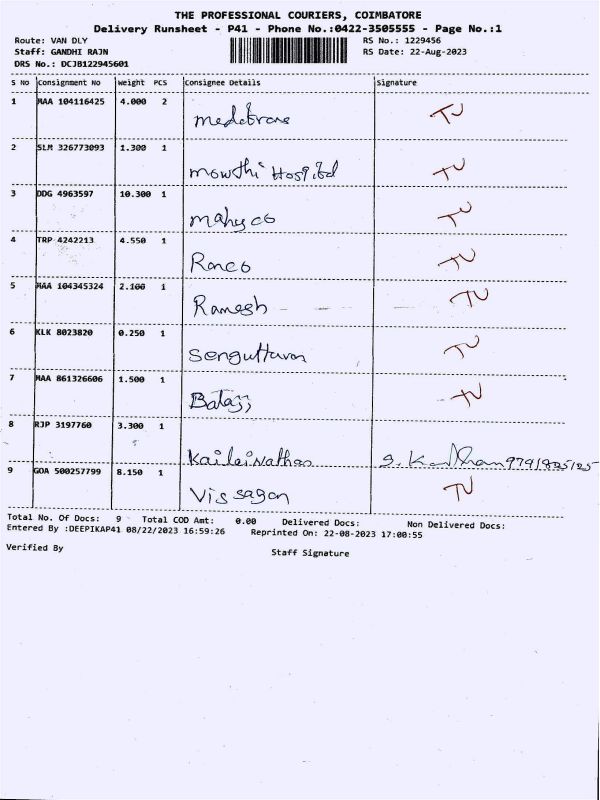 THE PROFESSIONAL COURIERS, COIMBATORE
Delivery Runsheet - P41 - Phone No.:0422-3505555 - Page No.:1
Route: VAN DLY RS No.: 1229456
Staff: GANDHI RAJN RS Date: 22-Aug-2023
DRS No.: DCJB122945601
S No Consignment No Weight PCS Consignee Details Signature
1 MAA 104116425 4.000 2 TU
2 SLM 326773093 1.300 1 mowthi Hospital TU
3 DDG 4963597 10.300 1 mahyco TU
4 TRP 4242213 4.550 1 TU
5 MAA 104345324 2.100 1 Ramesh TU
6 KLK 8023820 0.250 1 Senguttuvan TU
7 MAA 861326606 1.500 1 Balaji TU
8 RJP 3197760 3.300 1 Kailainathan
9 GOA 500257799 8.150 1 Vissagan TU
Total No. Of Docs: 9 Total COD Amt: 0.00 Delivered Docs: Non Delivered Docs:
Entered By :DEEPIKAP41 08/22/2023 16:59:26 Reprinted On: 22-08-2023 17:00:55
Verified By Staff Signature